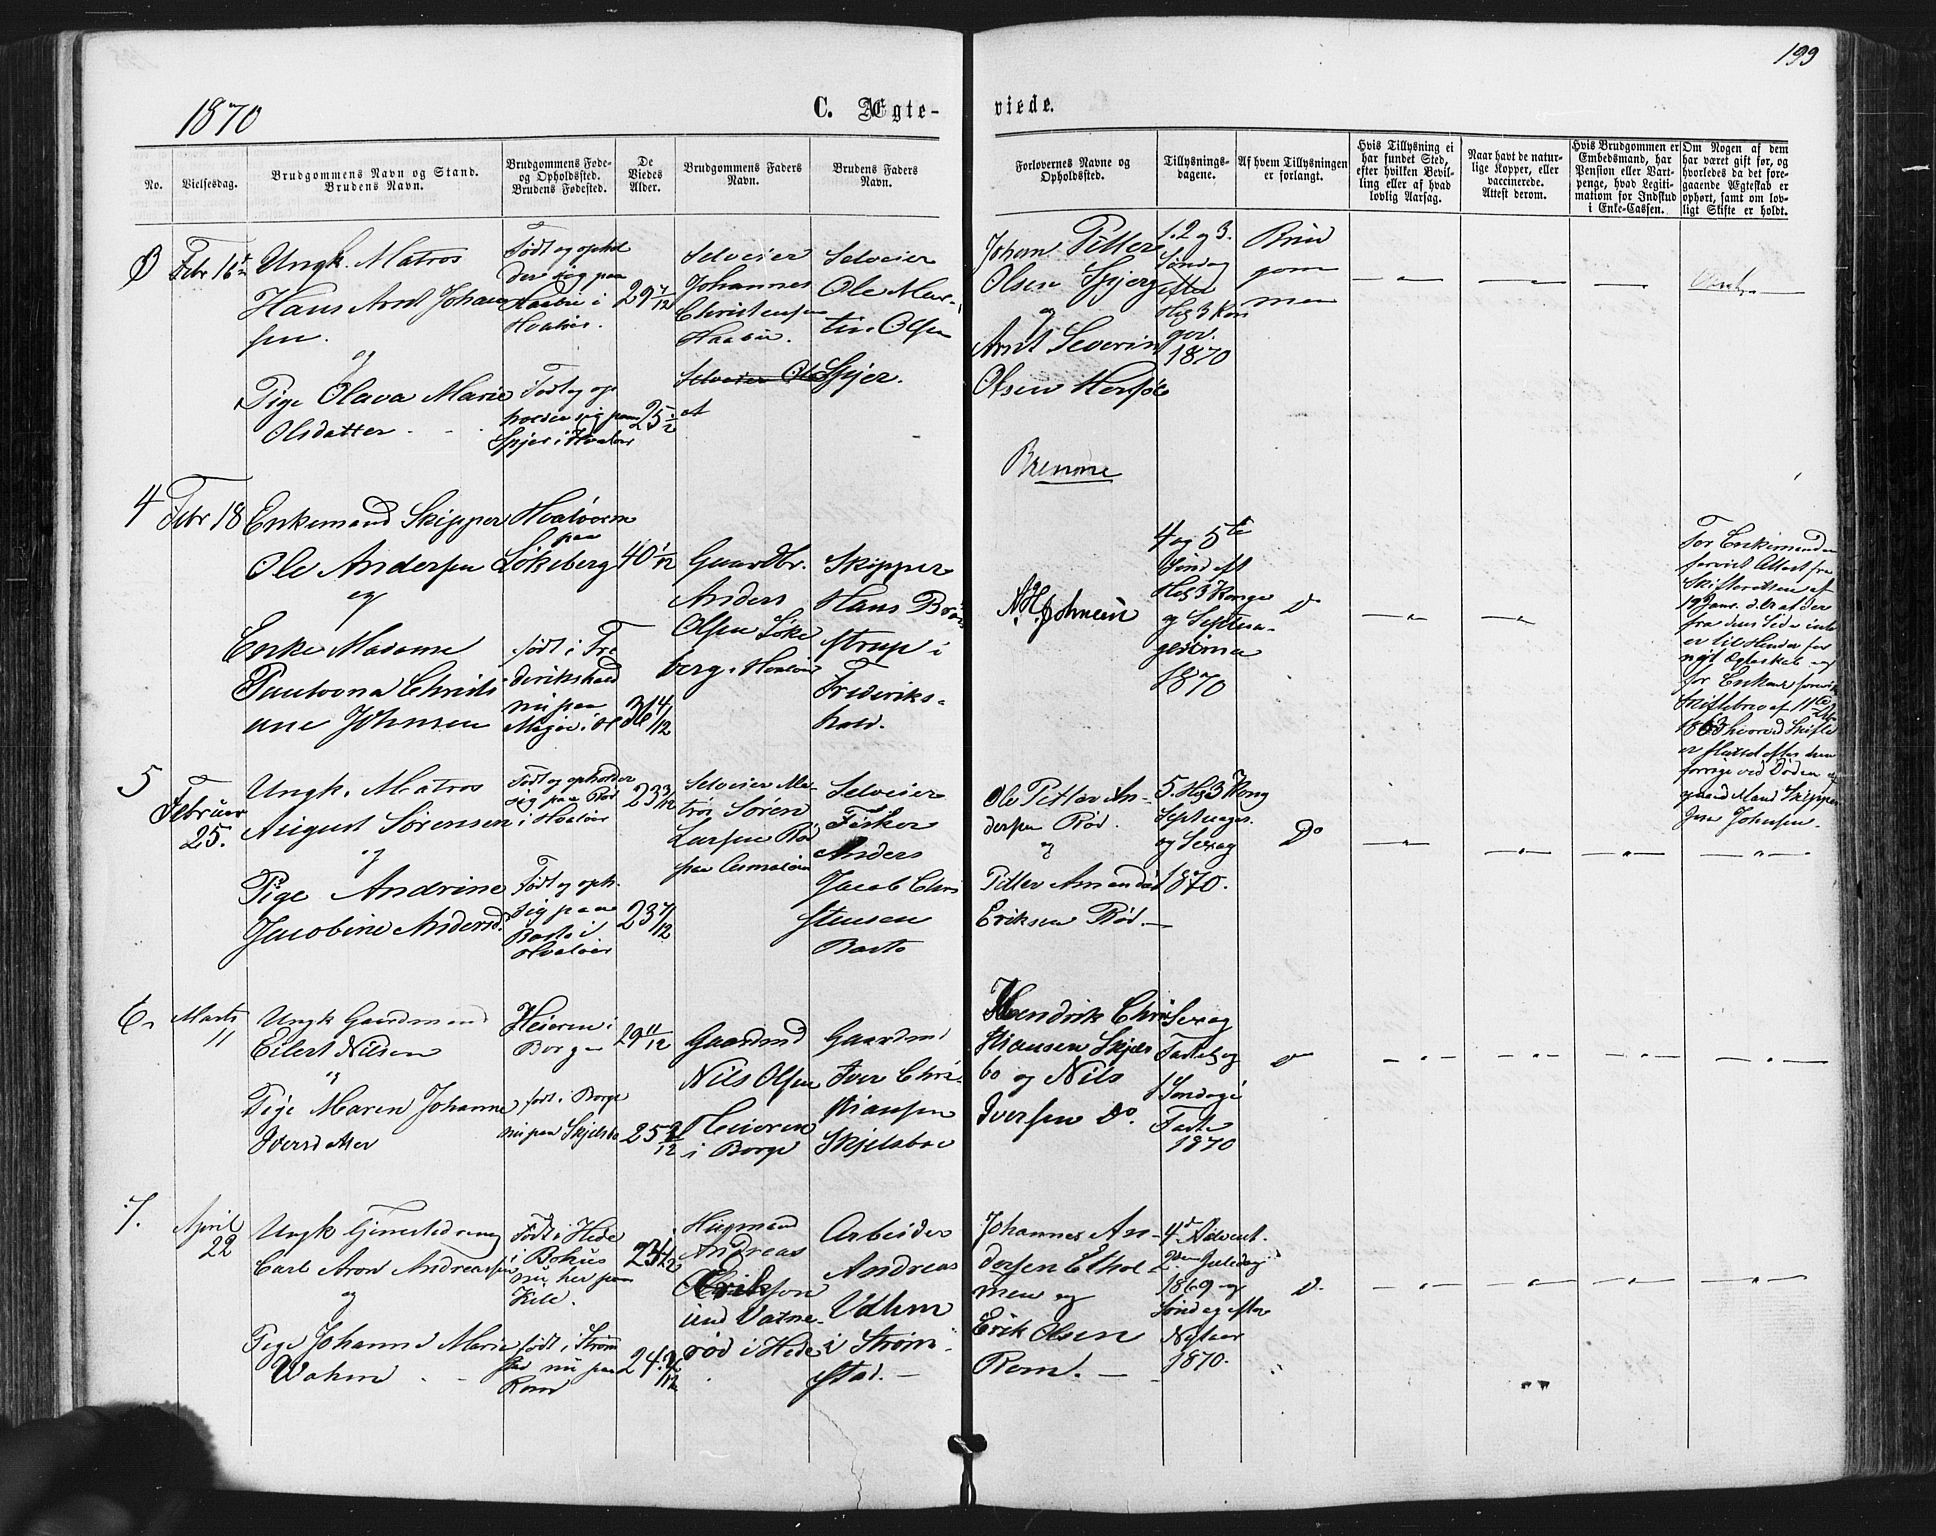 199
1870
C. Ægte-
viede.
No.
Vielsesdag.
Brudgommens Navn og Stand.
Brudens Navn.
Brudgommens Føde-
og Opholdssted.
Brudens Fødested.
De
Viedes
Alder.
Brudgommens Faders
Navn.
Brudens Faders
Navn.
Forlovernes Navne og
Opholdssted.
Tillysnings-
dagene.
Af hvem Tillysningen
er forlangt.
Hvis Tillysning ei
har fundet Sted,
efter hvilken Bevil-
ling eller af hvad
lovlig Aarsag.
Naar havt de natur-
lige Kopper, eller
vaccinerede.
Attest derom.
Hvis Brudgommen er
Embedsmand, har
Pension eller Vart-
penge, hvad Legiti-
mation for Indskud
i Enke-Cassen.
Om Nogen af dem
har været gift før, og
hvorledes da det fore-
gaaende Ægteskab er
ophørt, samt om lov-
ligt Skifte er holdt.
3
Febr 16
Ungk. Matros
Hans Arnt Johan
sen.
og
Pige Olava Marie
Olsdatter
Født og ophol
der sig paa
i
Hvaløer.
Født og op
holder sig paa
Spjer i Hvaløer
29 7/12
25 1/2
Selveier
Johannes
Christensen
Selveier
Ole Mar-
tin Olsen
Spjer.
Johan Pitter
Olsen Spjer
og
Arnt Severin
Olsen
1. 2 og 3.
Søndag
efter
Hel 3 Kon
ger.
1870
Brud
gom
men
Brenne
4
Febr 18
Enkemand Skipper
Ole Andersen
og
Enke Madame
Paulovna Christi
ane Johnsen
Hvaløerne
paa
Løkeberg
født i Fre
derikshald
nu paa
40 1/12
4/12
Gaardbr.
Anders
Olsen Løke
berg i Hvaløer
Skipper
Hans
strup i
Frederiks-
hald.
Johnsen
4 og 5te
Sønd eft
Hel 3 Konge
og Septua-
gesima
1870
Do
For Enkemanden
forevist Attest fra
Skifteretten af
19 Janr. at der
fra dens Side intet
er til Hinder for
nyt Ægteskab og
for Enken forevist
Skiftebrev af 11te
hvorved Skifte
er sluttet efter den
forrige ved Døden
Mand Skipper
Johnsen.
5
Februar
25.
Ungk. Matros
August Sørensen
og
Pige Andrine
Jacobine Andersd.
Født og opholder
sig paa Rød
i Hvaløer
Født og oph.
sig paa
Basto i
Hvaløer
23 3/12
23 7/12
Selveier Ma-
tros Søren
Larsen Rød
paa Asmaløen
Selveier
Fisker
Anders
Jacob Chri
stensen
Basto
Ole Pitter An-
dersen Rød.
og
Pitter Amandus
Eriksen Rød.
5. Hel 3 Kong
Septuages.
og Sexag
1870.
Do
6.
Marts
11
Ungk Gaardmand
Eilert Nilsen
og
Pige Maren Johanne
Iversdatter
Heieren i
Borge
født i Borge
nu paa Skjelsbo
29 11/12
25
Gaardmd
Nils Olsen
Heieren
i Borge
Gaardmd
Iver Chri-
stiansen
Skjelsboe
Hendrik Chri
stiansen Skjels
bo og Nils
Iversen Do.
Sexag
Fastel og
1 Søndag i
Faste
1870
Do
7.
April
22
Ungk Tjenestedreng
Carl Aron Andreassen
og
Pige Johanne Marie
Født i Hede
i Bohus
nu her paa
Kile.
født i Strøm
stad nu paa
Rom
23
24
Husmand
Andreas
Erikson
und Vatne-
rød i Hede
Arbeider
Andreas
i Strøm
stad.
Johannes An-
dersen Ethol
men og
Erik Olsen
Rom.
4de Advent.
2den Juledag
1869 og
Søndag efter
Nytaar
1870.
Do